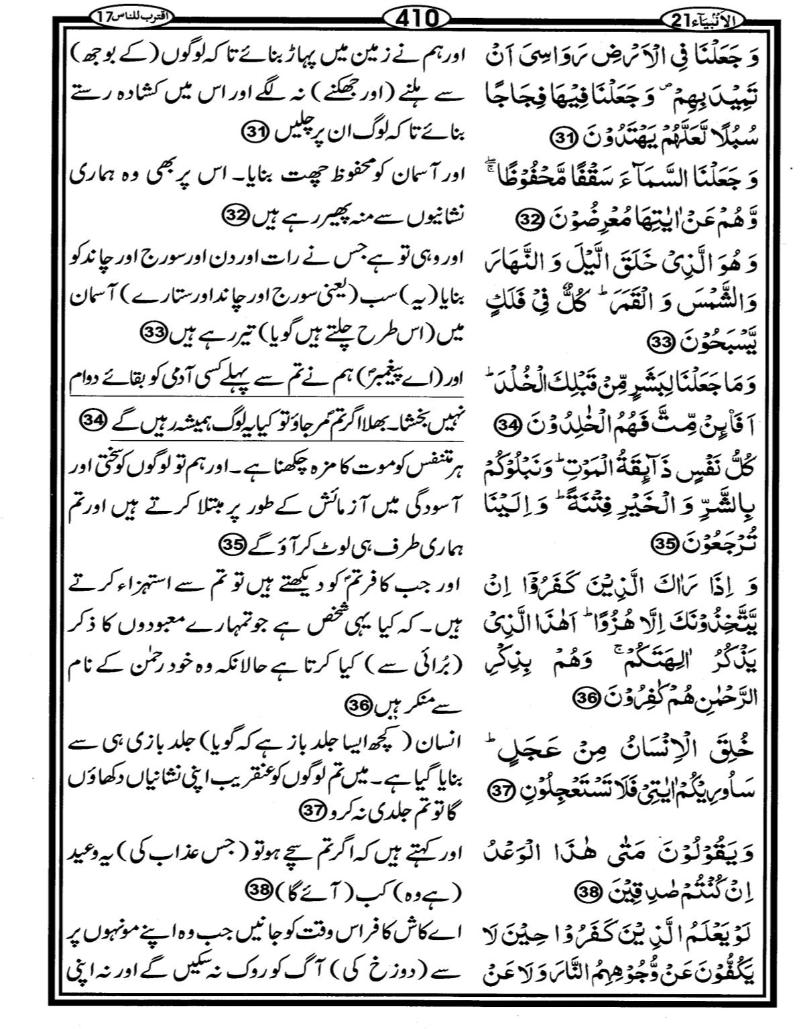 الانبیآء 21
410
اقترب للناس 17
وَ جَعَلۡنَا فِی الۡاَرۡضِ رَوَاسِیَ اَنۡ
تَمِیۡدَ بِہِمۡ ۪ وَ جَعَلۡنَا فِیۡہَا فِجَاجًا
سُبُلًا لَّعَلَّہُمۡ یَہۡتَدُوۡنَ ﴿31﴾
وَ جَعَلۡنَا السَّمَآءَ سَقۡفًا مَّحۡفُوۡظًا ۚۖ
وَّہُمۡ عَنۡ اٰیٰتِہَا مُعۡرِضُوۡنَ ﴿32﴾
وَ ہُوَ الَّذِیۡ خَلَقَ الَّیۡلَ وَ النَّہَارَ
وَالشَّمۡسَ وَ الۡقَمَرَ ؕ کُلٌّ فِیۡ فَلَکٍ
یَّسۡبَحُوۡنَ ﴿33﴾
وَمَا جَعَلۡنَا لِبَشَرٍ مِّنۡ قَبۡلِکَ الۡخُلۡدَ ؕ
اَفَا۠ئِنۡ مِّتَّ فَہُمُ الۡخٰلِدُوۡنَ ﴿34﴾
کُلُّ نَفۡسٍ ذَآئِقَۃُ الۡمَوۡتِ ؕ وَنَبۡلُوۡکُمۡ
بِالشَّرِّ وَ الۡخَیۡرِ فِتۡنَۃً ؕ وَ اِلَیۡنَا
تُرۡجَعُوۡنَ ﴿35﴾
وَ اِذَا رَاٰکَ الَّذِیۡنَ کَفَرُوۡۤا اِنۡ
یَّتَّخِذُوۡنَکَ اِلَّا ہُزُوًا ؕ اَہٰذَا الَّذِیۡ
یَذۡکُرُ اٰلِہَتَکُمۡ ۚ وَہُمۡ بِذِکۡرِ
الرَّحۡمٰنِ ہُمۡ کٰفِرُوۡنَ ﴿36﴾
خُلِقَ الۡاِنۡسَانُ مِنۡ عَجَلٍ ؕ
سَاُورِیۡکُمۡ اٰیٰتِیۡ فَلَا تَسۡتَعۡجِلُوۡنِ ﴿37﴾
وَیَقُوۡلُوۡنَ مَتٰی ہٰذَا الۡوَعۡدُ
اِنۡ کُنۡتُمۡ صٰدِقِیۡنَ ﴿38﴾
لَوۡ یَعۡلَمُ الَّذِیۡنَ کَفَرُوۡا حِیۡنَ لَا
یَکُفُّوۡنَ عَنۡ وُّجُوۡہِہِمُ النَّارَ وَلَا عَنۡ
اور ہم نے زمین میں پہاڑ بنائے تا کہ لوگوں (کے بوجھ)
سے ہلنے (اور جھکنے) نہ لگے اور اس میں کشادہ رستے
بنائے تا کہ لوگ ان پر چلیں ﴿31﴾
اور آسمان کو محفوظ چھت بنایا۔ اس پر بھی وہ ہماری
نشانیوں سے منہ پھیر رہے ہیں ﴿32﴾
اور وہی تو ہے جس نے رات اور دن اور سورج اور چاند کو
بنایا (یہ) سب (یعنی سورج اور چاند اور ستارے) آسمان
میں (اس طرح چلتے ہیں گویا) تیر رہے ہیں ﴿33﴾
اور (اے پیغمبرؐ) ہم نے تم سے پہلے کسی آدمی کو بقائے دوام
نہیں بخشا۔ بھلا اگر تم مر جاؤ تو کیا یہ لوگ ہمیشہ رہیں گے ﴿34﴾
ہر متنفس کو موت کا مزہ چکھنا ہے۔ اور ہم تو لوگوں کو سختی اور
آسودگی میں آزمائش کے طور پر مبتلا کرتے ہیں اور تم
ہماری طرف ہی لوٹ کر آؤ گے ﴿35﴾
اور جب کافر تمؐ کو دیکھتے ہیں تو تم سے استہزاء کرتے
ہیں۔ کہ کیا یہی شخص ہے جو تمہارے معبودوں کا ذکر
(بُرائی سے) کیا کرتا ہے حالانکہ وہ خود رحمٰن کے نام
سے منکر ہیں ﴿36﴾
انسان (کچھ ایسا جلد باز ہے کہ گویا) جلد بازی ہی سے
بنایا گیا ہے۔ میں تم لوگوں کو عنقریب اپنی نشانیاں دکھاؤں
گا تو تم جلدی نہ کرو ﴿37﴾
اور کہتے ہیں کہ اگر تم سچے ہو تو (جس عذاب کی) یہ وعید
(ہے وہ) کب (آئے گا) ﴿38﴾
اے کاش کافر اس وقت کو جانیں جب وہ اپنے مونہوں پر
سے (دوزخ کی) آگ کو روک نہ سکیں گے اور نہ اپنی